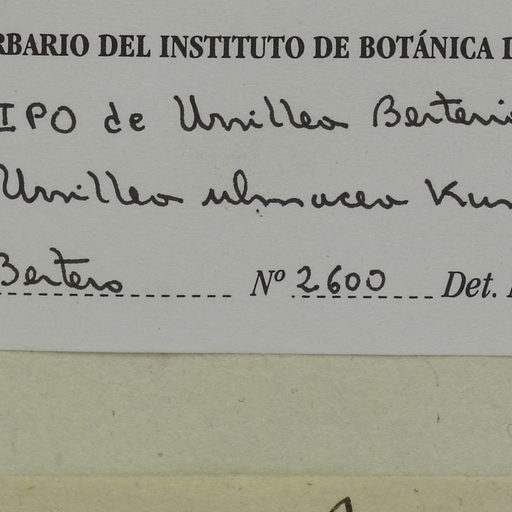 RBARIO DEL INSTITUTO DE BOTÁNICA D
IPO de Urvillea Berteri
Urvillea ulmacea Kun
Bertero Nº 2600 Det.